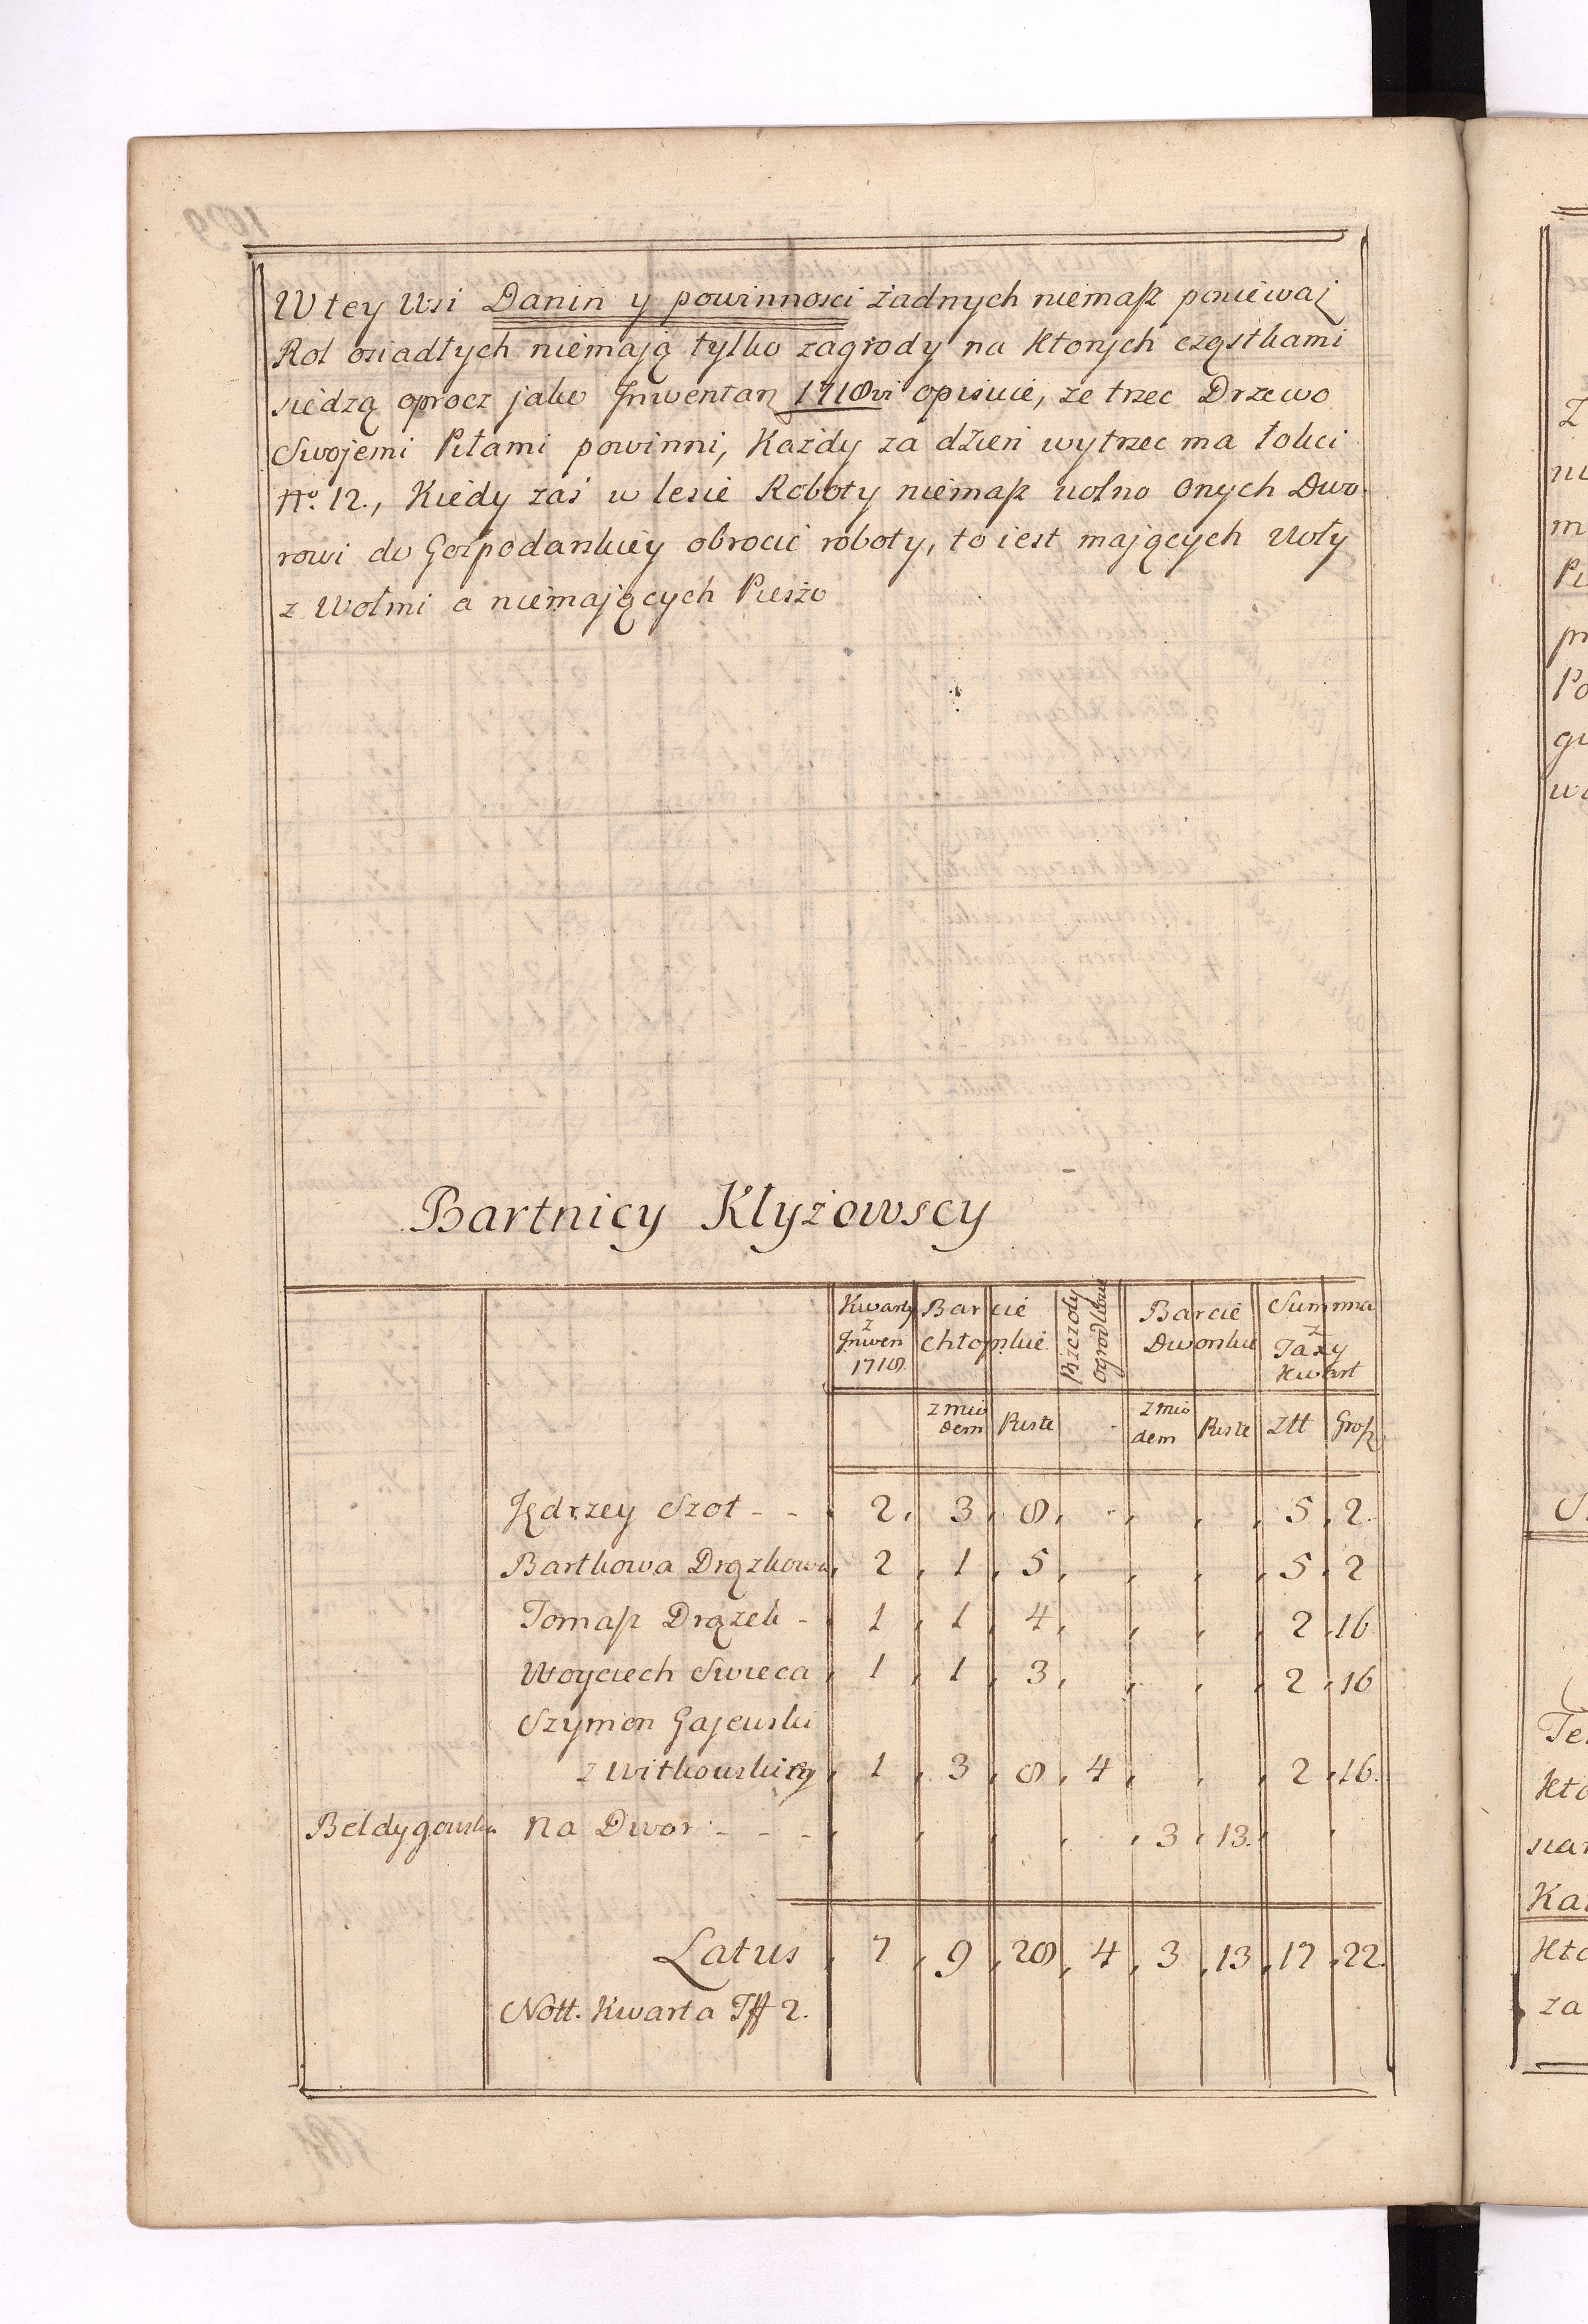 W tey Wsi Danin y powinnosci żadnych niemasz poniewaz
Rol osiadłych niemają tylko zagrody na ktorych cząstkami
siedzą oprocz jako Jnwentarz 1718vi opisuie, że trzec Drzewo
Swojemi Piłami powinni, Każdy za dzień wytrzec ma łokci
No. 12., Kiedy zaś w lesie Roboty niemasz wolno Onych Dwo-
rowi do Gospodarskiey obrocić roboty, to iest mających Woły
z Wołmi a niemających Pieszo
Bartnicy Kłyżowscy
Kwarty z Jnwen 1718. Barcie Chłopskie Pszczoły ogrodkowe Barcie Dworskie Summa z Taxy Kwart
z mio dem Puste z mio dem Puste Złł Grosz
Jędrzey Szot - - 2, 3, 8, 5, 2.
Bartkowa Drązkowa, 2, 1, 5, 5, 2
Tomasz Drązek - 1, 1, 4, 2, 16
Woyciech Swieca, 1, 1, 3, 2, 16
Szymon Gajewski
z Witkowskim, 1, 3, 8, 4, 2, 16.
Bełdygowska Na Dwor - - - 3, 13.
Latus, 7, 9, 28, 4, 3, 13, 17, 22.
Nott. Kwarta 2.